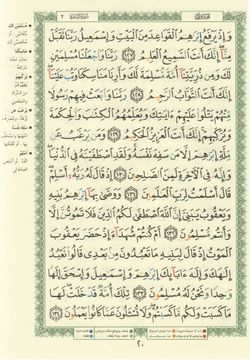 وَإِذْ يَرْفَعُ إِبْرَٰهِـۧمُ ٱلْقَوَاعِدَ مِنَ ٱلْبَيْتِ وَإِسْمَٰعِيلُ رَبَّنَا تَقَبَّلْ
مِنَّآ ۖ إِنَّكَ أَنتَ ٱلسَّمِيعُ ٱلْعَلِيمُ ﴿١٢٧﴾ رَبَّنَا وَٱجْعَلْنَا مُسْلِمَيْنِ
لَكَ وَمِن ذُرِّيَّتِنَآ أُمَّةً مُّسْلِمَةً لَّكَ وَأَرِنَا مَنَاسِكَنَا وَتُبْ عَلَيْنَآ ۖ
إِنَّكَ أَنتَ ٱلتَّوَّابُ ٱلرَّحِيمُ ﴿١٢٨﴾ رَبَّنَا وَٱبْعَثْ فِيهِمْ رَسُولًا
مِّنْهُمْ يَتْلُوا۟ عَلَيْهِمْ ءَايَٰتِكَ وَيُعَلِّمُهُمُ ٱلْكِتَٰبَ وَٱلْحِكْمَةَ
وَيُزَكِّيهِمْ ۚ إِنَّكَ أَنتَ ٱلْعَزِيزُ ٱلْحَكِيمُ ﴿١٢٩﴾ وَمَن يَرْغَبُ عَن
مِّلَّةِ إِبْرَٰهِـۧمَ إِلَّا مَن سَفِهَ نَفْسَهُۥ ۚ وَلَقَدِ ٱصْطَفَيْنَٰهُ فِى ٱلدُّنْيَا ۖ
وَإِنَّهُۥ فِى ٱلْـَٔاخِرَةِ لَمِنَ ٱلصَّٰلِحِينَ ﴿١٣٠﴾ إِذْ قَالَ لَهُۥ رَبُّهُۥٓ أَسْلِمْ ۖ
قَالَ أَسْلَمْتُ لِرَبِّ ٱلْعَٰلَمِينَ ﴿١٣١﴾ وَوَصَّىٰ بِهَآ إِبْرَٰهِـۧمُ بَنِيهِ
وَيَعْقُوبُ يَٰبَنِىَّ إِنَّ ٱللَّهَ ٱصْطَفَىٰ لَكُمُ ٱلدِّينَ فَلَا تَمُوتُنَّ إِلَّا
وَأَنتُم مُّسْلِمُونَ ﴿١٣٢﴾ أَمْ كُنتُمْ شُهَدَآءَ إِذْ حَضَرَ يَعْقُوبَ
ٱلْمَوْتُ إِذْ قَالَ لِبَنِيهِ مَا تَعْبُدُونَ مِنۢ بَعْدِى قَالُوا۟ نَعْبُدُ
إِلَٰهَكَ وَإِلَٰهَ ءَابَآئِكَ إِبْرَٰهِـۧمَ وَإِسْمَٰعِيلَ وَإِسْحَٰقَ إِلَٰهًا
وَٰحِدًا وَنَحْنُ لَهُۥ مُسْلِمُونَ ﴿١٣٣﴾ تِلْكَ أُمَّةٌ قَدْ خَلَتْ ۖ لَهَا
مَا كَسَبَتْ وَلَكُم مَّا كَسَبْتُمْ ۖ وَلَا تُسْـَٔلُونَ عَمَّا كَانُوا۟ يَعْمَلُونَ ﴿١٣٤﴾
٢٠